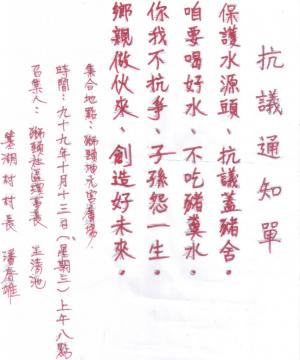 抗議通知單
保護水源頭、抗議蓋豬舍。
咱要喝好水、不吃豬糞水。
你我不抗爭、子孫怨一生。
鄉親做伙來、創造好未來。
集合地點：獅頭坤元宮廣場.
時間：九十九年十月十三日(星期三)上午八點
召集人：獅頭社區理事長 王清池
湖村村長 潘春雄